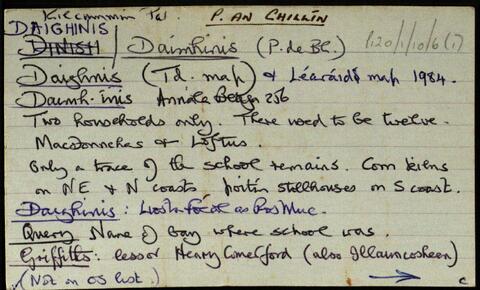 Kilcummin Td P. AN CHILLÍN
DAIGHINIS
DINISH / Daimhinis (P. de Bh.) P120/1/10/6(i)
Daighnis (Td. map) & Léaráidí map 1984.
Daimh-inis Annála Beaga 256
Two households only. There used to be twelve.
MacDonnchas & Loftus.
Only a trace of the school remains. Corn kilns
on NE & N coasts. poitín stillhouses on S coast.
Daighinis: Liosta Focal as Ros Muc.
Query Name of bay where school was.
Griffiths: lessor Henry Comerford (also Illauncosheen)
(Not on OS list.) → c